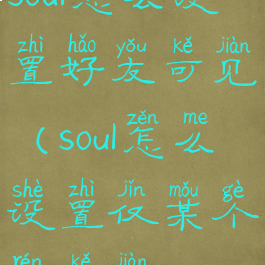 soul怎么设
zhì hǎo yǒu kě jiàn
置好友可见
zěn me
(soul怎么
shè zhì jǐn mǒu gè
设置仅某个
rén kě jiàn